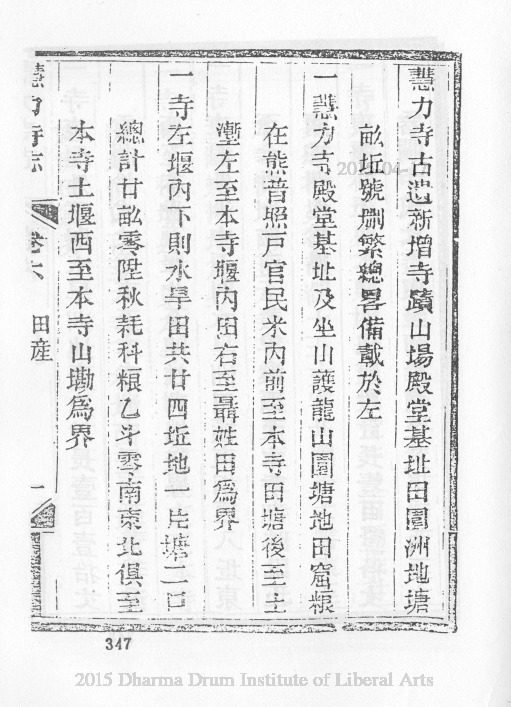 慧力寺古遺新增寺蹟山場殿堂基址田園洲地塘
畝坵號刪繁總畧備載於左
一慧力寺殿堂基址及坐山護龍山園塘地田窟糧
在熊普照戶官民米內前至本寺田塘後至土
壍左至本寺堰內田右至聶姓田為界
一寺左堰內下則水旱田共廿四坵地一片塘二口
總計廿畝零陞秋耗科粮乙斗零南東北俱至
本寺土堰西至本寺山塝為界
慧力寺志 卷六 田産 一
347
2015 Dharma Drum Institute of Liberal Arts